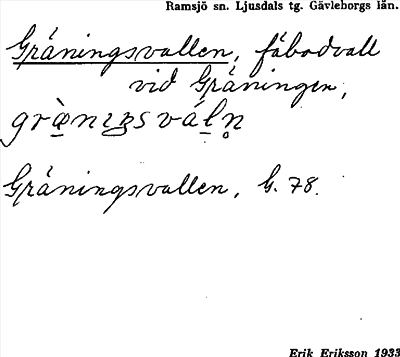 Ramsjö sn. Ljusdals tg. Gävleborgs län.
Gräningsvallen, fäbodvall
vid Gräningen,
Gräningsvallen, G. 78.
Erik Eriksson 1933